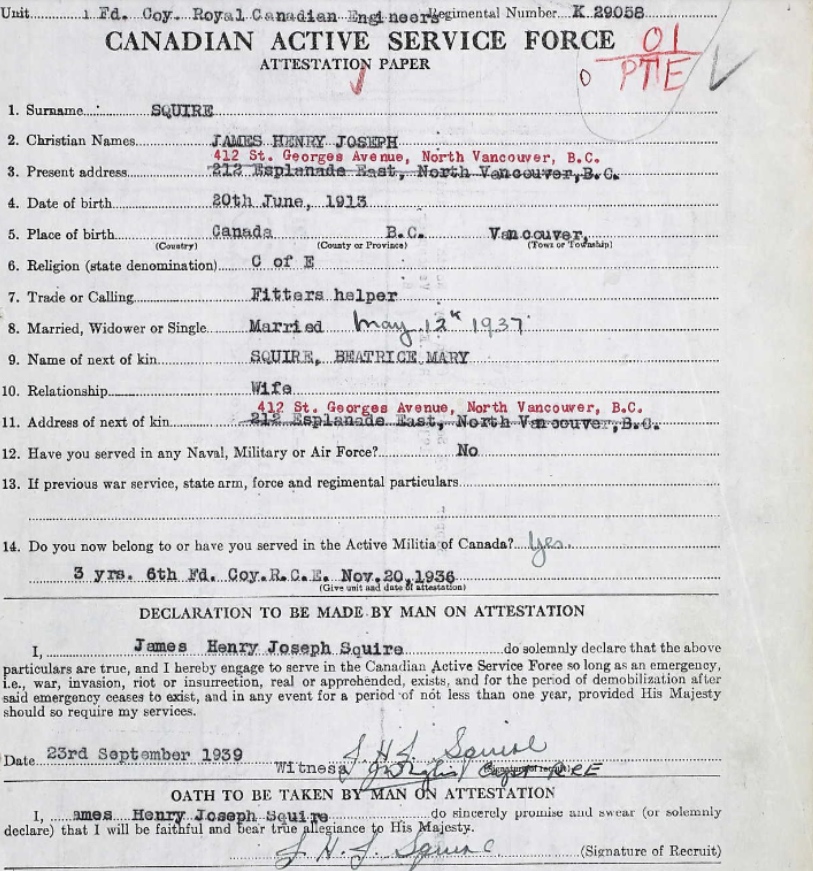 Unit 1 Fd. Coy. Royal Canadian Engineers Regimental Number K 29058
CANADIAN ACTIVE SERVICE FORCE
ATTESTATION PAPER
01
PTE
1. Surname SQUIRE
2. Christian Names JAMES HENRY JOSEPH
412 St. Georges Avenue, North Vancouver, B.C.
3. Present address 212 Esplanade East, North Vancouver, B.C.
4. Date of birth 20th June, 1913
5. Place of birth Canada B.C. Vancouver,
(Country) (County or Province) (Town or Township)
6. Religion (state denomination) C of E
7. Trade or Calling Fitters helper
8. Married, Widower or Single Married May 12th 1937
9. Name of next of kin SQUIRE, BEATRICE MARY
10. Relationship Wife
412 St. Georges Avenue, North Vancouver, B.C.
11. Address of next of kin 212 Esplanade East, North Vancouver, B.C.
12. Have you served in any Naval, Military or Air Force? No
13. If previous war service, state arm, force and regimental particulars
14. Do you now belong to or have you served in the Active Militia of Canada? Yes.
3 yrs. 6th Fd. Coy. R.C.E. Nov. 20, 1936
(Give unit and date of attestation)
DECLARATION TO BE MADE BY MAN ON ATTESTATION
I, James Henry Joseph Squire do solemnly declare that the above
particulars are true, and I hereby engage to serve in the Canadian Active Service Force so long as an emergency,
i.e., war, invasion, riot or insurrection, real or apprehended, exists, and for the period of demobilization after
said emergency ceases to exist, and in any event for a period of not less than one year, provided His Majesty
should so require my services.
J H J Squire
Date 23rd September 1939
Witness
OATH TO BE TAKEN BY MAN ON ATTESTATION
I, ames Henry Joseph Squire do sincerely promise and swear (or solemnly
declare) that I will be faithful and bear true allegiance to His Majesty.
J. H. J. Squire (Signature of Recruit)